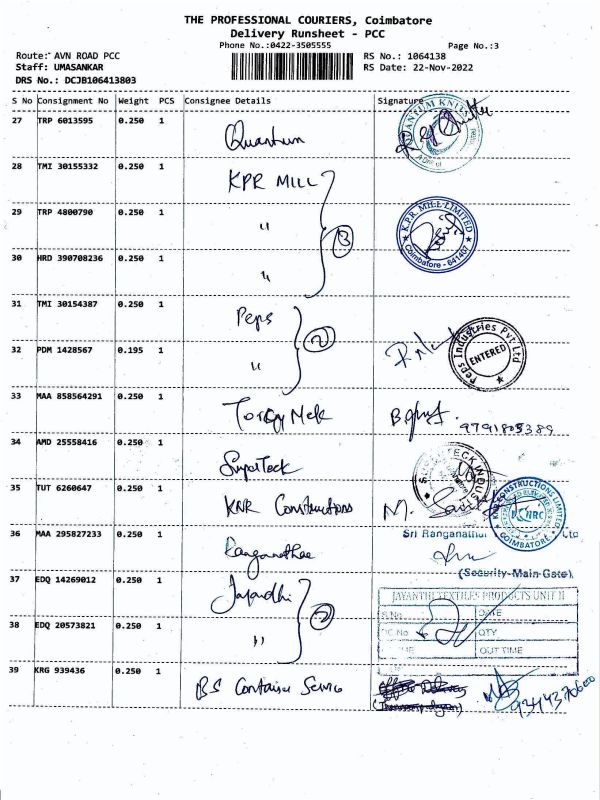 THE PROFESSIONAL COURIERS, Coimbatore
Delivery Runsheet - PCC
Phone No.:0422-3505555 Page No.:3
Route: AVN ROAD PCC RS No.: 1064138
Staff: UMASANKAR RS Date: 22-Nov-2022
DRS No.: DCJB106413803
S No Consignment No Weight PCS Consignee Details Signature
27 TRP 6013595 0.250 1 Quantum QUANTUM KNITS
28 TMI 30155332 0.250 1 KPR MILL
29 TRP 4800790 0.250 1 " 3 K.P.R. MILL LIMITED Coimbatore - 641407
30 HRD 390708236 0.250 1 "
31 TMI 30154387 0.250 1 Peps
32 PDM 1428567 0.195 1 " 2 Peps Industries Pvt Ltd ENTERED
33 MAA 858564291 0.250 1 9791805389
34 AMD 25558416 0.250 1 SuperTeck
35 TUT 6260647 0.250 1 KNR Constructions M. KNR CONSTRUCTIONS LIMITED KNRC COIMBATORE
36 MAA 295827233 0.250 1 Ranganathae Sri Ranganathar Ltd
(Security-Main Gate)
37 EDQ 14269012 0.250 1 Jayandhi JAYANTHI TEXTILES PRODUCTS UNIT II
S.No DATE
38 EDQ 20573821 0.250 1 " 2 DC.No QTY
TIME OUT TIME
39 KRG 939436 0.250 1 BS Container